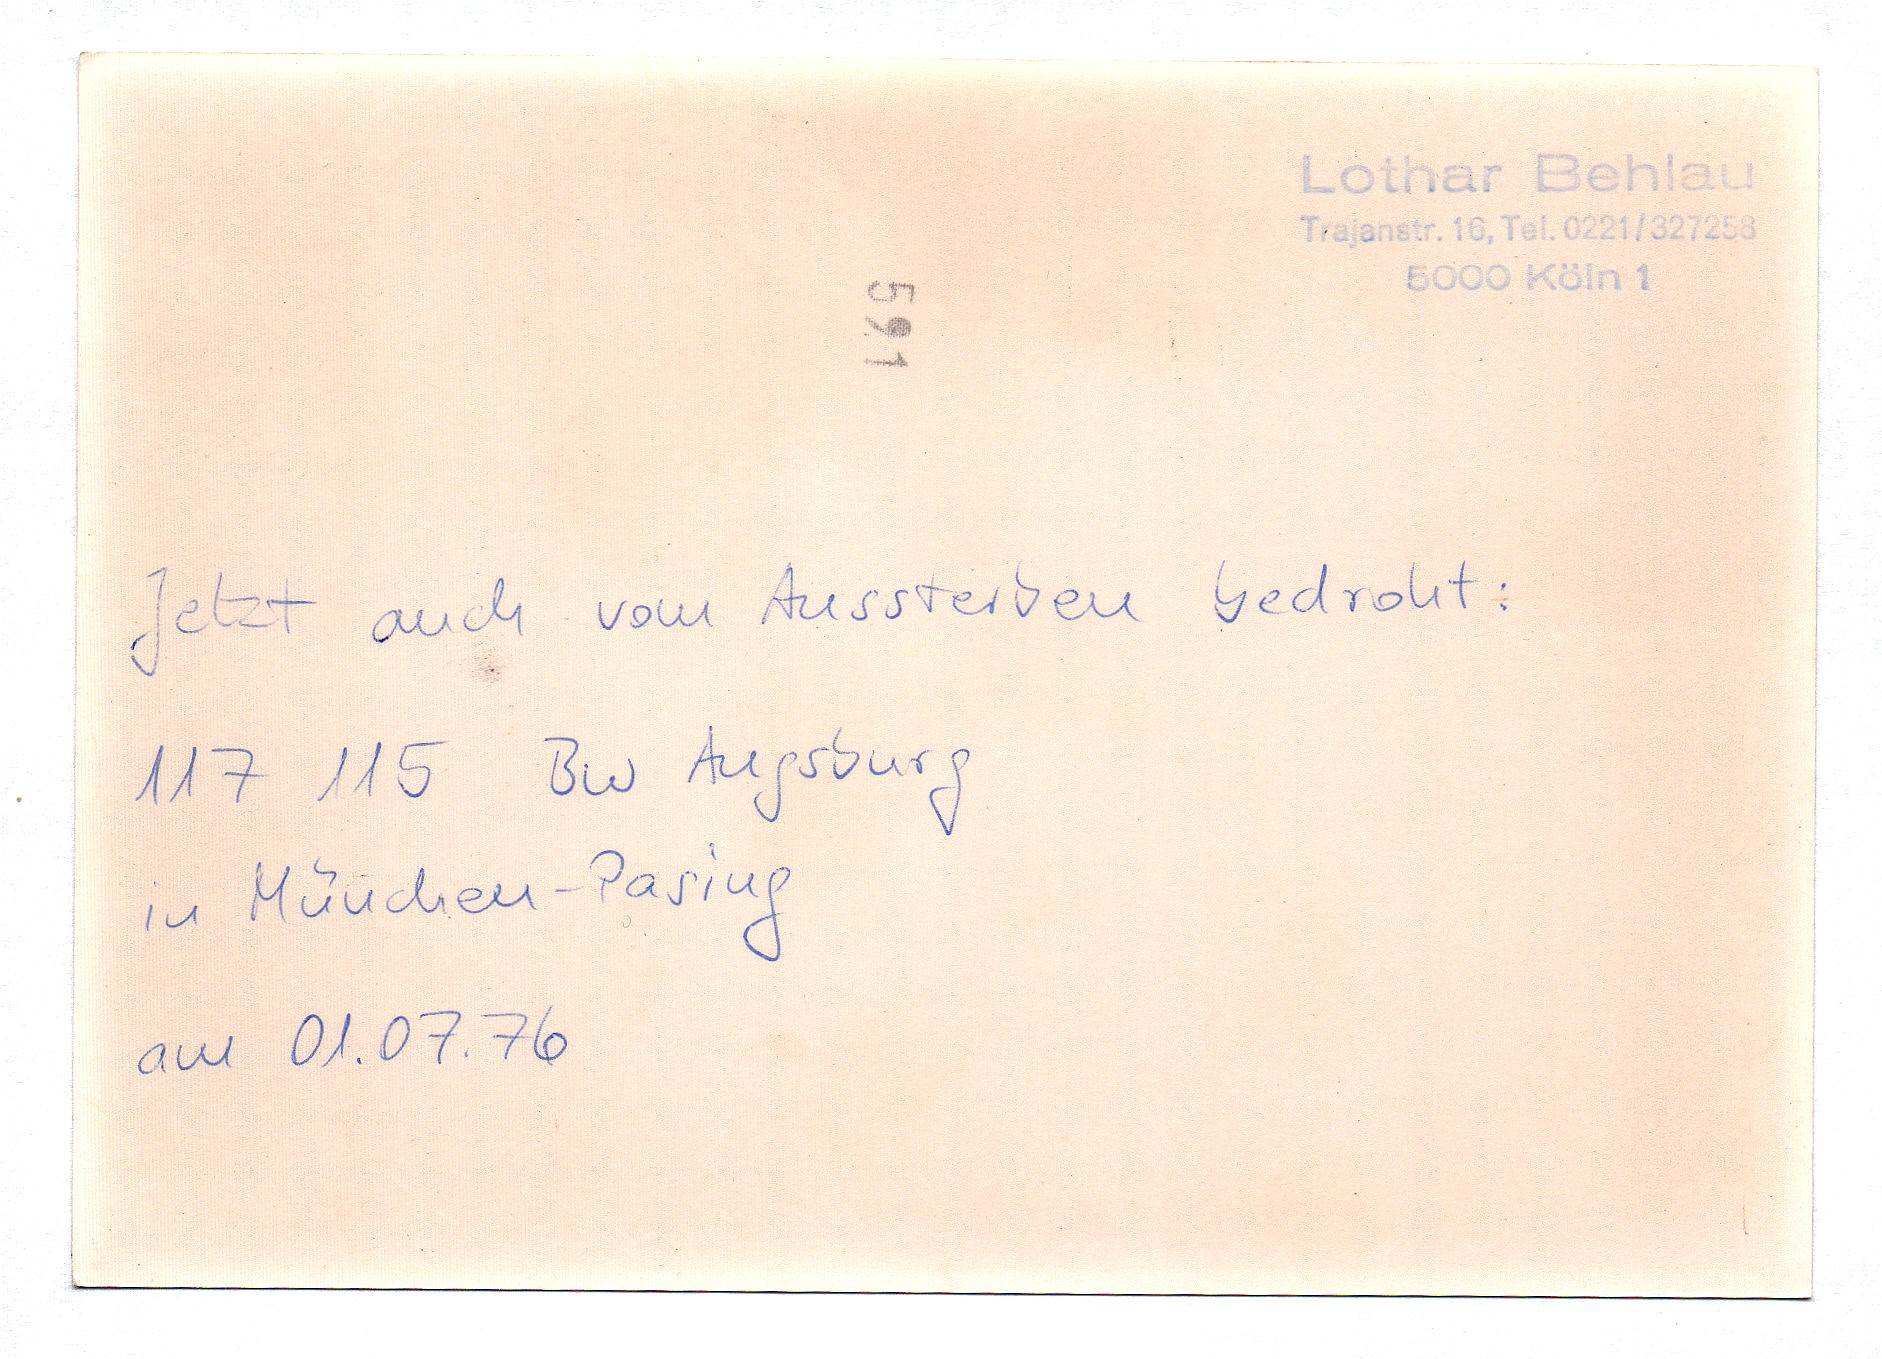 Lothar Behlau
Trajanstr. 16, Tel. 0221/327258
5000 Köln 1
591
Jetzt auch vom Aussterben bedroht:
117 115 Bw Augsburg
in München-Pasing
am 01.07.76